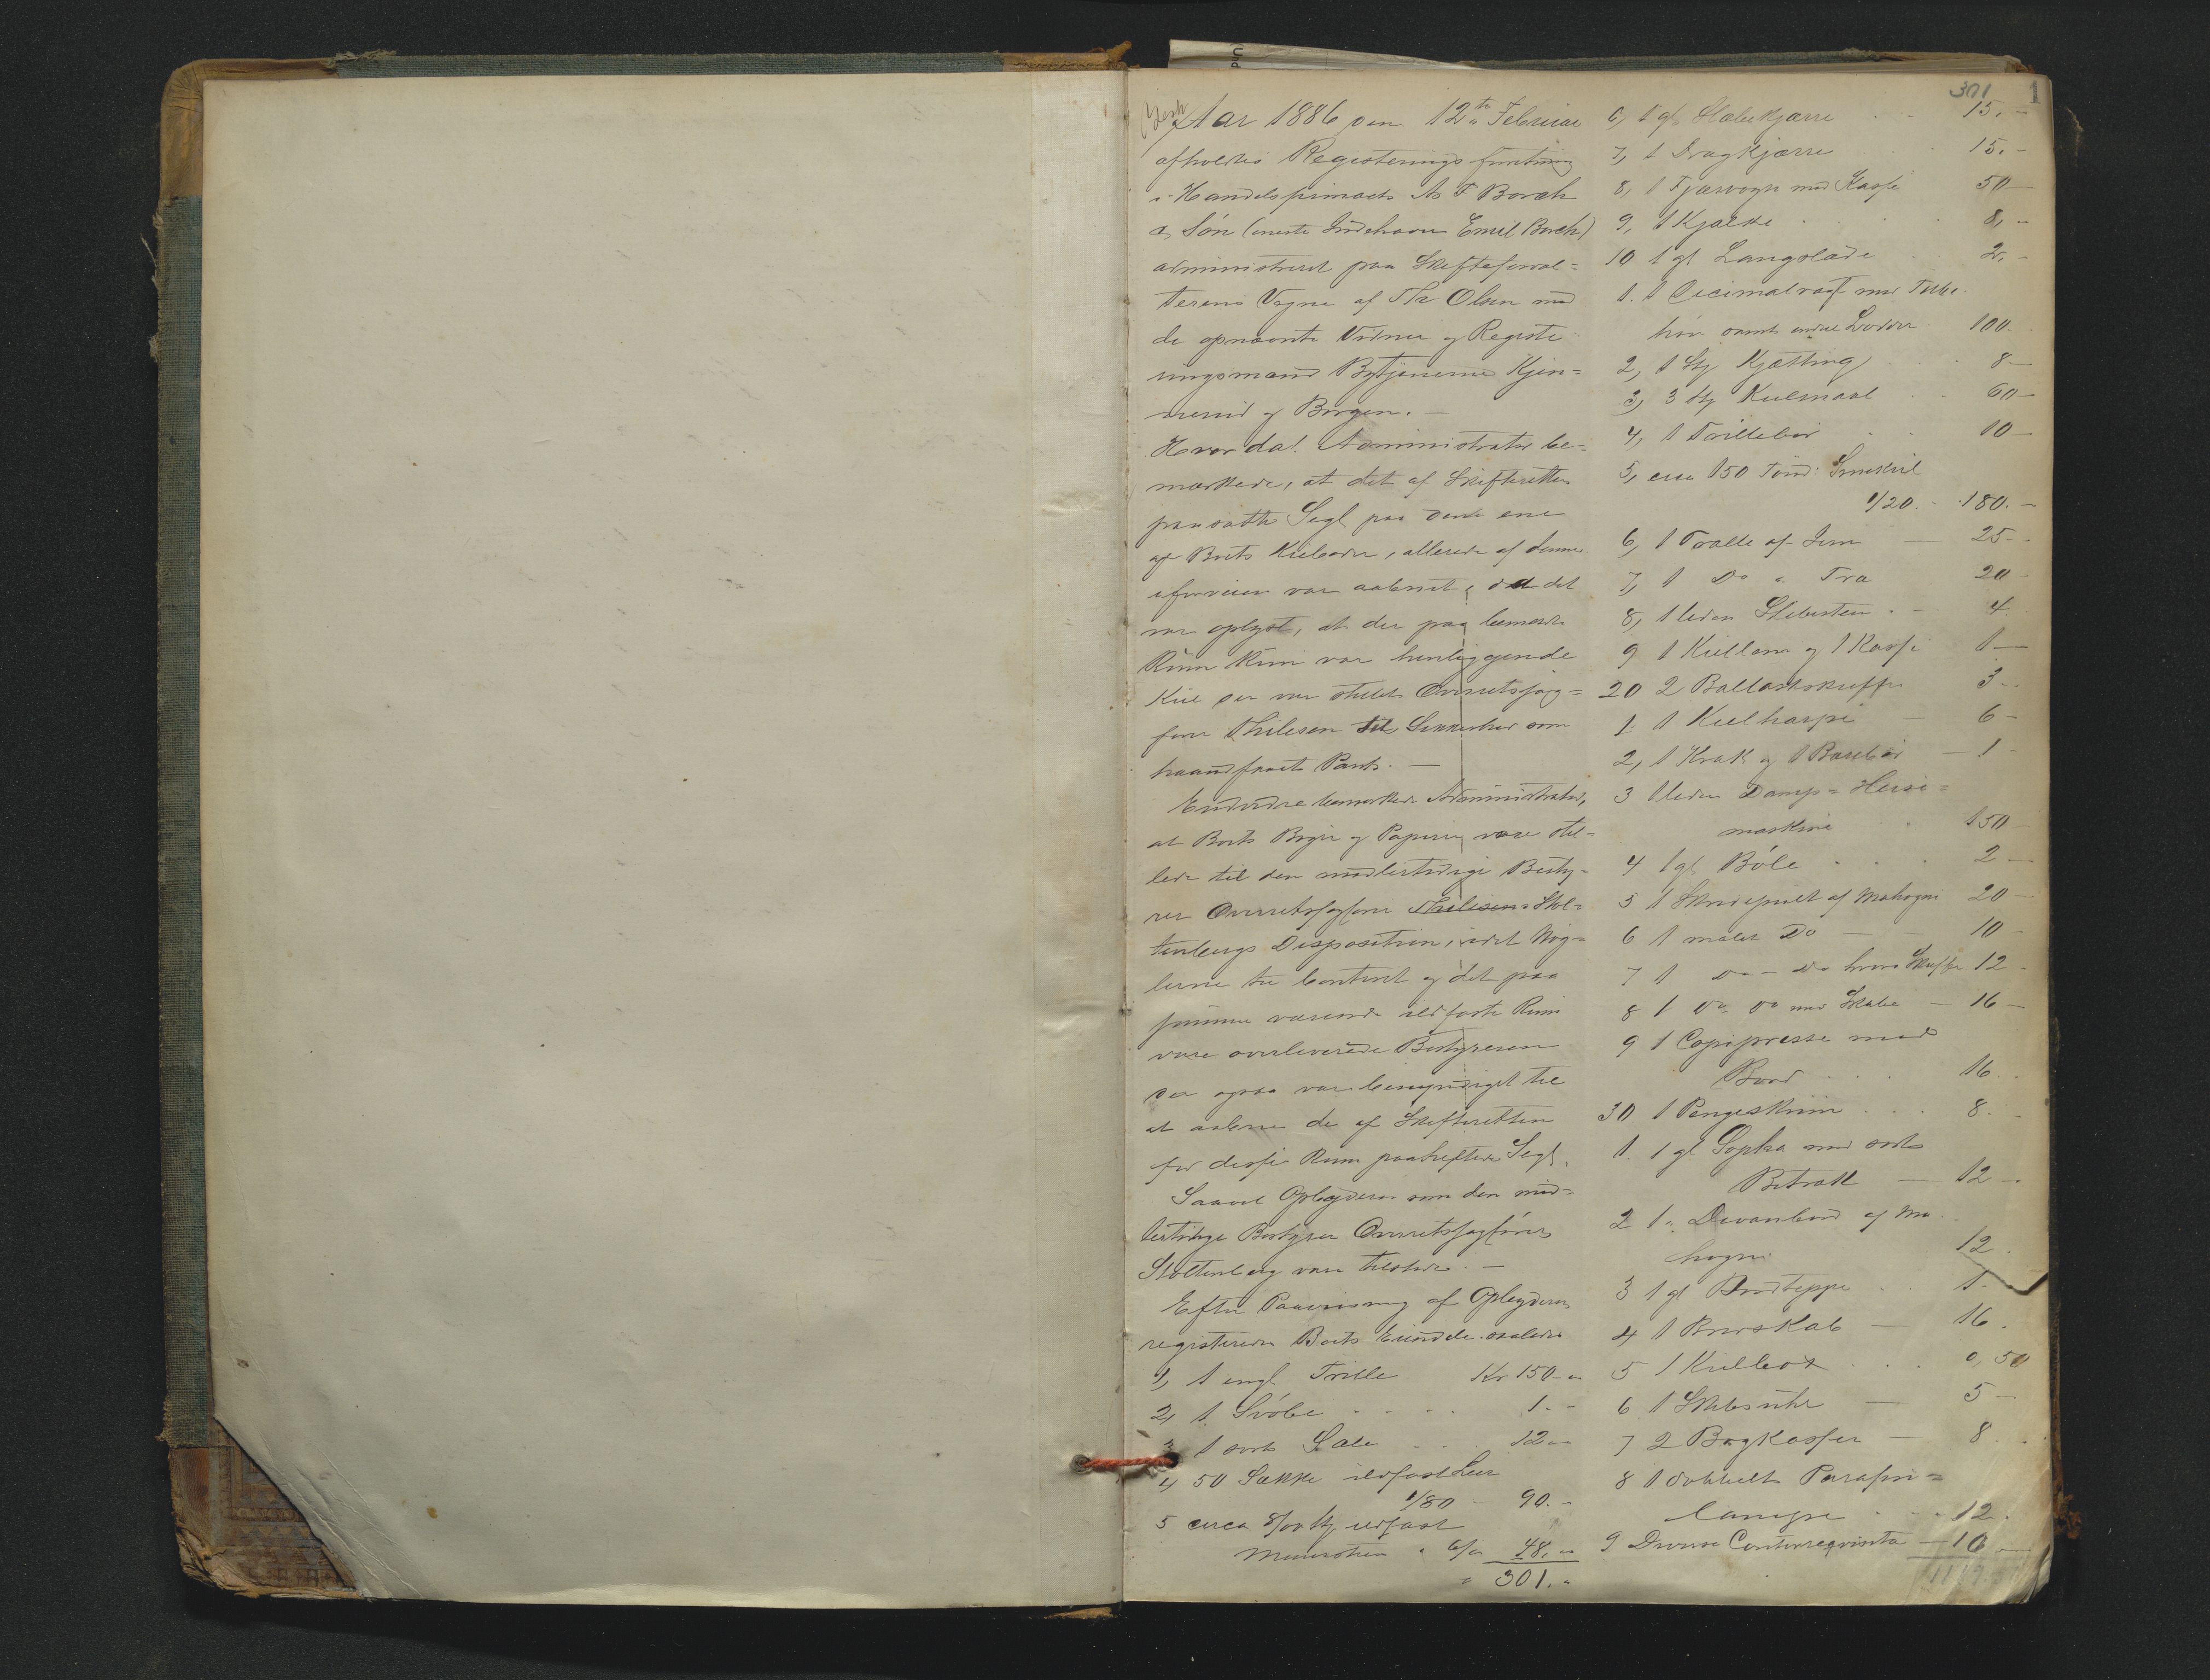 301
1
Aar 1886 den 12te Februar
afholdtes Registreringsforretning
i Handelsfirmaets As F Borch
& Sön (eneste Indehaver Emil Borch)
administreret paa Skifteforval=
terens Vegne af Th Olsen med
de opnævnte Vidner og Registe
ringsmænd Bytjenerne Kjen=
nerud og Borgen. —
Hvor da! Administrator be=
mærkede, at det af Skifteretten
paasatte Segl paa den ene
af Boets Kulboder, allerede af denne
iforveien var aabnet, da det
var oplyst, at der paa bemeldte
Rum kun var henliggende
Kul der var stillet Overretssag=
fører Thilesen til Sikkerhed som
haandfaaet Pant. —
Endvidere bemærkede Administrator,
at Boets Bøger og Papirer vare stil=
lede til den midlertidige Besty=
rer Overretssagfører Thilesen Stol=
tenbergs Disposition, idet Nøg=
lerne til Contoret og det paa
samme værende ildfaste Rum
vare overleverede Bestyreren
der ogsaa var bemyndiget til
at aabne de af Skifteretten
for disse Rum paahæftede Segl.
Saavel Opbyderen som den mid=
lertidige Bestyrer Overretssagfører
Stoltenberg vare tilstede. —
Efter Paavisning af Opbyderen
registreredes Boets Eiendele saaledes
1, 1 engl Trille Kr 150 -
2, 1 Svöbe 1. -
3 1 sort Sæle 12 -
4 50 Sække ildfast Leer
1/80 - 90. -
5 circa 800 Stk ildfast
Mursten 6/ 48. -
301. -
6, 1 gl. Slæbekjærre 15. -
7, 1 Dragkjærre 15. -
8, 1 Fjærvogn med Kasse 50 -
9, 1 Kjælke 8, -
10 1 gl Langslæde 2, -
1. 1 Decimalvægt med Tilbe
hör samt endel Lodder 100.
2, 1 Stk Kjætting 8 -
3, 3 Stk Kulmaal 60 -
4, 1 Trillebör 10 -
5, circa 150 Tønd: Smekul
1/20. - 180. -
6, 1 Tralle af Jern — 25. -
7, 1 Do " Træ 20 -
8, 1 liden Slibesten - 4
9 1 Kullem og 1 Kasse 1 -
20 2 Ballastskuffer 3 -
1. 1 Kulharpe — 6 -
2, 1 Krak og 1 Bærebör — 1 -
3 1 liden Damp= Heise=
maskine 150 -
4 1 gl Böle 2 -
5 1 Skrivepult af Mahogni 20 -
6 1 malet Do — 10 -
7 1 Do - Do hvori Skuffe 12 -
8 1 Do Do med Skabe — 16 -
9 1 Copipresse med
Bord 16. -
30 1 Pengeskrin 8. -
1. 1 gl Sopha med sort
Betræk — 12 -
2 1 " Divanbord af Ma
hogni 12.
3 1 gl Bordteppe 1. -
4 1 Brevskab — 16.
5 1 Kulbox 0,50
6 1 Skibsuhr — 5 -
7 2 Bogkasser — 8. -
8 1 dobbelt Parafin=
lampe 12.
9 Diverse Contorreqvisita — 10 -